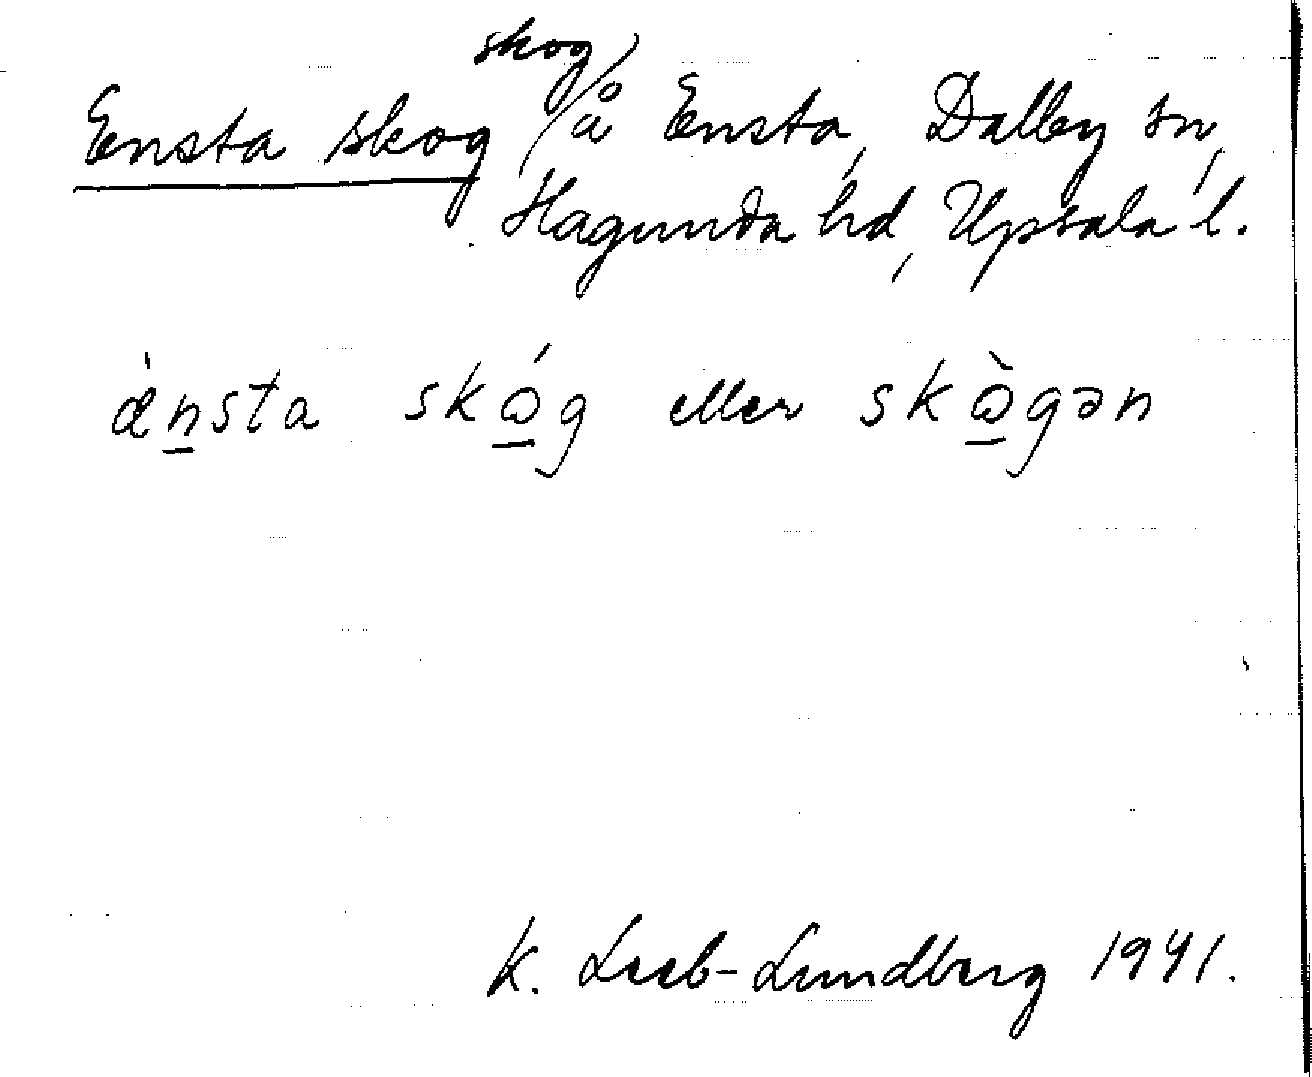 Ensta skog skog/å Ensta, Dalby sn,
Hagunda hd, Upsala l.
ǽn̲sta skǫ́g eller skǫ̀gən
K. Leeb-Lundberg 1941.